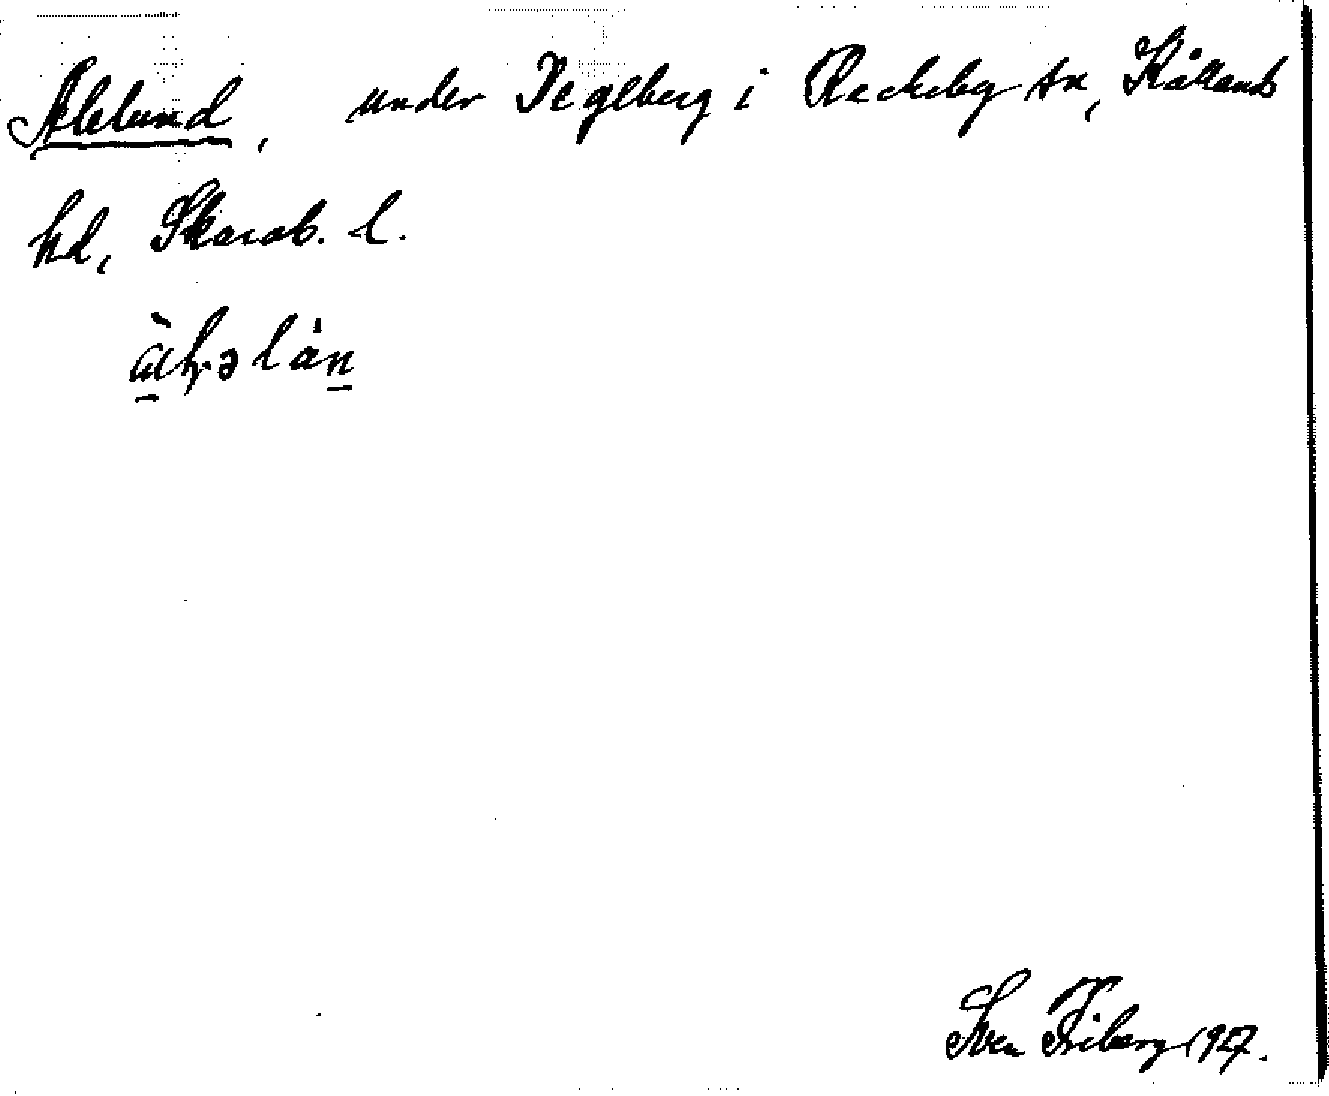 Alelund, under Teglberg i Rackeby sn, Kållands
hd, Skarab. l.
Sven Friberg 1927.